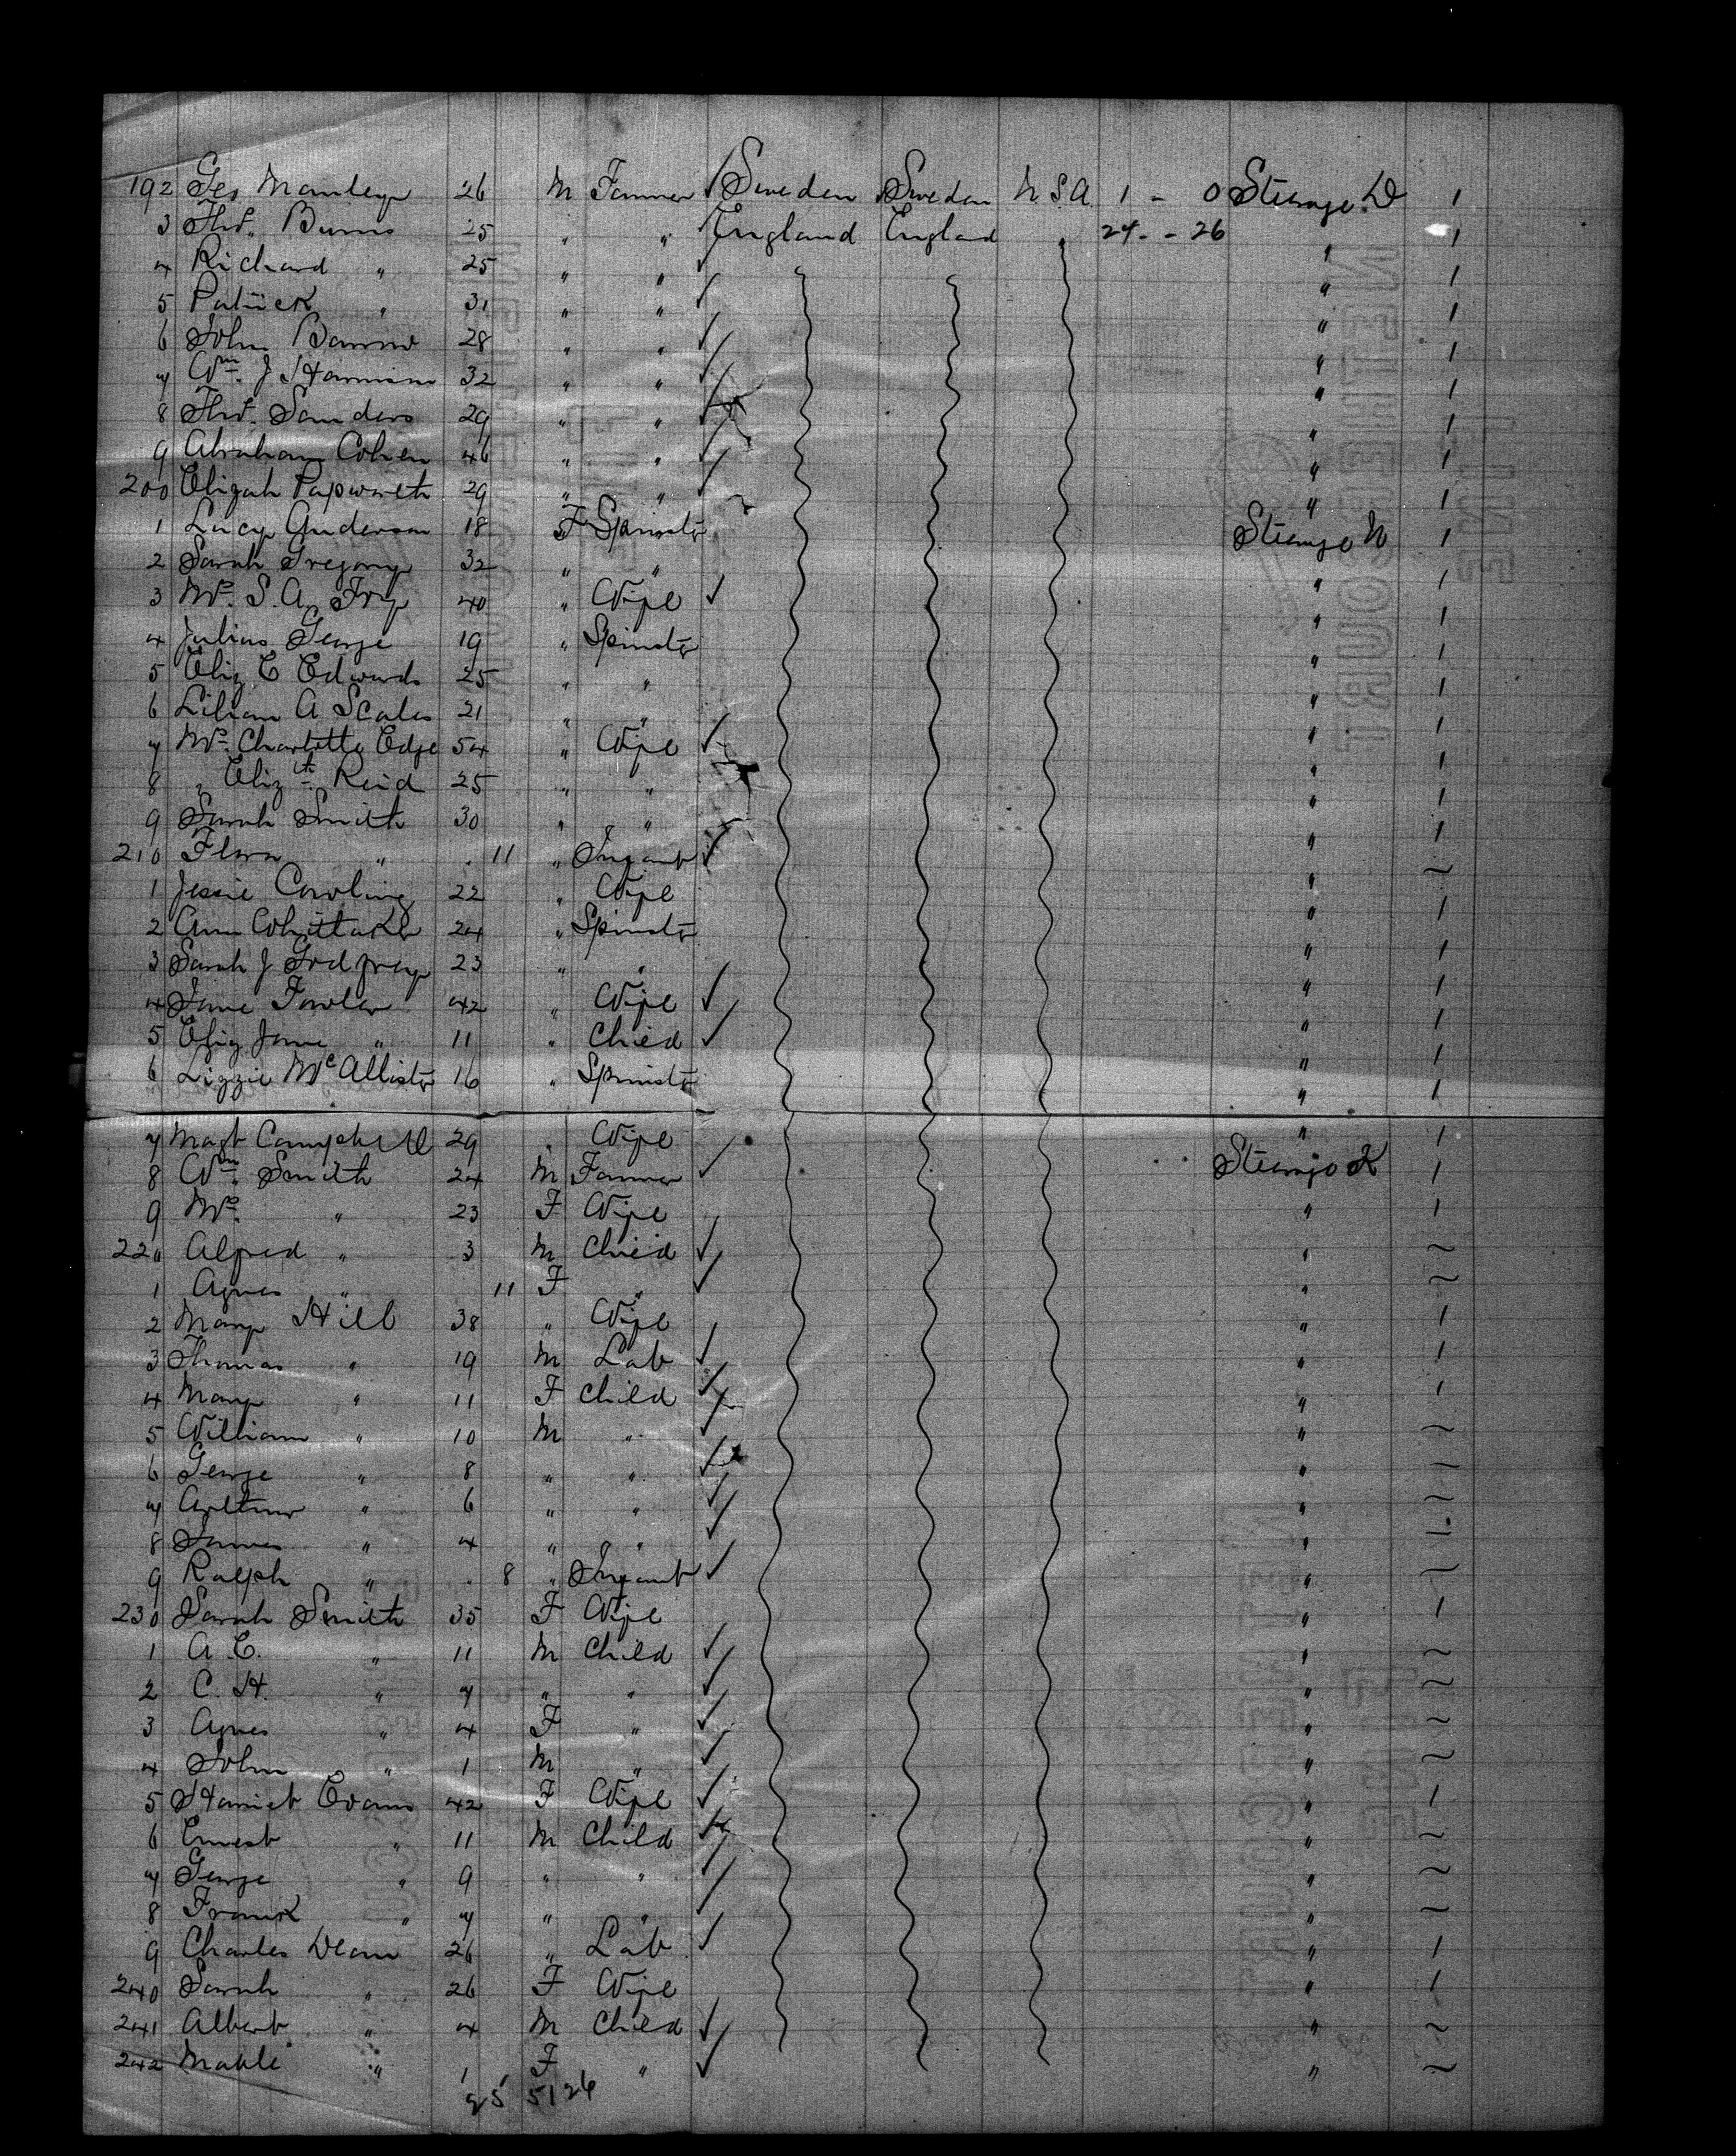 192 Geo Manley 26 M Farmer Sweden Sweden U.S.A. 1 - 0 Steerage D 1
3 Thos. Burns 25 " " England England " 24 - - 26 " 1
4 Richard " 25 " " " 1
5 Patrick " 31 " " " 1
6 John 28 " " " 1
7 Wm. J Harrison 32 " " " 1
8 Thos. Sanders 29 " " " 1
9 Abraham Cohen 46 " " " 1
200 Elizah Papworth 29 " " " 1
1 Lucy Anderson 18 F Spinster Steerage N 1
2 Sarah Gregory 32 " " " 1
3 Mrs. S. A. Fry 40 " Wife " 1
4 Julius George 19 " Spinster " 1
5 Eliz C Edwards 25 " " " 1
6 Lilian A Scales 21 " " " 1
7 Mrs. Charlotte Edge 54 " Wife " 1
8 " Elizth Reid 25 " " " 1
9 Sarah Smith 30 " " " 1
210 Flora " . 11 " Infant " ~
1 Jessie Cowling 22 " Wife " 1
2 Ann Whittaker 24 " Spinster " 1
3 Sarah J Godfrey 23 " " " 1
4 Jane Fowler 42 " Wife " 1
5 Eliz Jane " 11 " Child " 1
6 Lizzie McAllister 16 " Spinster " 1
7 Magt Campbell 29 " Wife " 1
8 Wm. Smith 24 M Farmer Steerage 1
9 Mrs. " 23 F Wife " 1
220 Alfred " 3 M Child " ~
1 Agnes " 11 F " " ~
2 Mary Hill 38 " Wife " 1
3 Thomas " 19 M Lab " 1
4 Mary " 11 F Child " 1
5 William " 10 M " " ~
6 George " 8 " " " ~
7 Arthur " 6 " " " ~
8 James " 4 " " " ~
9 Ralph " . 8 " Infant " ~
230 Sarah Smith 35 F Wife " 1
1 A. E. " 11 M Child " ~
2 C. H. " 7 " " " ~
3 Agnes " 4 F " " ~
4 John " 1 M " " ~
5 Harriet Evans 42 F Wife " 1
6 Ernest " 11 M Child " ~
7 George " 9 " " " ~
8 Frank " 7 " " " ~
9 Charles Dean 26 " Lab " 1
240 Sarah " 26 F Wife " 1
241 Albert " 4 M Child " ~
242 Mable " 1 F " " ~